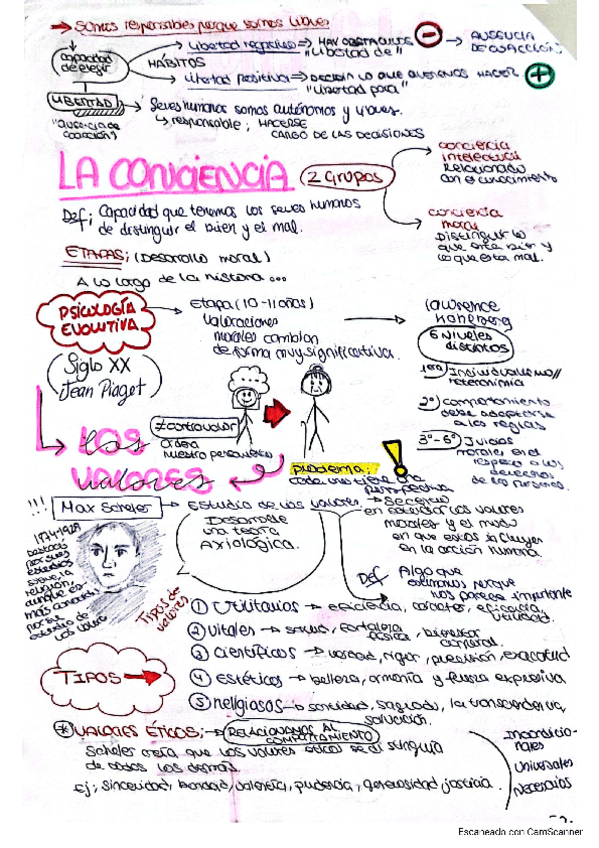 → Somos responsables porque somos libres
capacidad de elegir
HÁBITOS
Libertad negativa ⇒ HAY OBSTÁCULOS "Libertad de" ⊖ → AUSENCIA DE COACCIÓN
Libertad positiva ⇒ DECIDIR LO QUE QUEREMOS HACER "Libertad para" ⊕
LIBERTAD
"ausencia de coacción"
Seres humanos somos autónomos y libres.
↳ responsable; HACERSE CARGO DE LAS DECISIONES
LA CONCIENCIA
2 Grupos
conciencia intelectual
Relacionado con el conocimiento
conciencia moral
Distinguir lo que esta bien y lo que esta mal.
Def; Capacidad que tenemos los seres humanos
de distinguir el bien y el mal.
ETAPAS; (Desarrollo moral)
A lo largo de la historia...
PSICOLOGÍA EVOLUTIVA
Siglo XX
Jean Piaget
Etapa (10-11 años)
valoraciones
morales cambian
de forma muy significativa.
Lawrence
6 niveles distintos
1º Individualismo//
2º) comportamiento
debe adaptarse
a las reglas
3º-6º) Juicios
morales en el
respeto a los
derechos
de las personas.
LOS VALORES
ordena
nuestro pensamiento
problema;
cada uno tiene una
perspectiva
!!! Max Scheler → Estudio de los valores. → Se centró
en estudiar los valores
morales y el modo
en que estos influyen
en la acción humana.
1874-1928
Desarrolle
una teoría
Axiológica.
Def; Algo que
estimamos porque
nos parece importante
Tipos de valores
TIPOS →
① Utilitarios → eficiencia, carácter, eficacia, utilidad.
② vitales → salud, fortaleza física, bienestar corporal.
③ científicos → verdad, rigor, precisión, exactitud
④ Estéticos → belleza, armonía y fuerza expresiva
⑤ Religiosos → santidad, sagrado, la transcendencia, salvación.
* VALORES ÉTICOS; → RELACIONAMOS AL COMPORTAMIENTO
Scheler creía que los valores éticos
de todos los demás.
Ej; sinceridad, bondad, valentía, prudencia, generosidad justicia.
Incondicionales
Universales
Necesarios
Escaneado con CamScanner